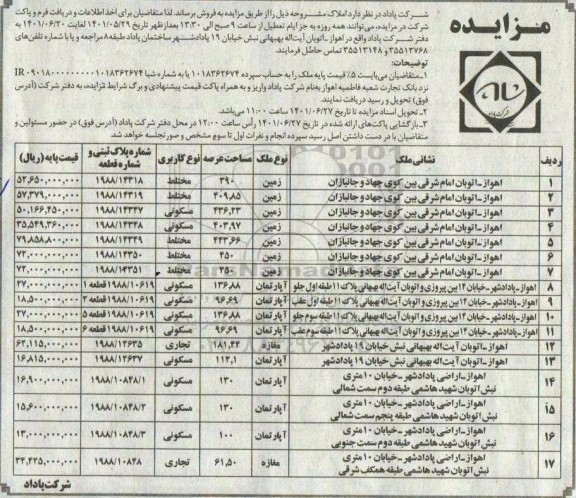 مزایده
شرکت پاداد در نظر دارد املاک مشروحه ذیل را از طریق مزایده به فروش برساند. لذا متقاضیان برای اخذ اطلاعات و دریافت فرم و پاکت
شرکت در مزایده، می‌توانند همه روزه به جز ایام تعطیل از ساعت ۹ صبح الی ۱۳:۳۰ بعدازظهر تاریخ ۱۴۰۱/۰۵/۲۹ لغایت ۱۴۰۱/۰۶/۲۰ به
دفتر شرکت پاداد واقع در اهواز-اتوبان آیت‌اله بهبهانی نبش خیابان ۱۹ پادادشهر ساختمان پاداد طبقه ۸ مراجعه و یا با شماره تلفن‌های
۳۵۵۱۳۷۶۸ و ۳۵۵۱۳۱۴۸ تماس حاصل فرمایند.
توضیحات:
۱-متقاضیان می‌بایست ۵٪ قیمت پایه ملک را به حساب سپرده ۱۰۱۸۳۶۲۶۷۴ یا به شماره شبا IR ۰۹۰۱۸۰۰۰۰۰۰۰۰۰۰۱۰۱۸۳۶۲۶۷۴
نزد بانک تجارت شعبه فاطمیه اهواز به‌نام شرکت پاداد واریز و به همراه پاکت قیمت پیشنهادی و برگ شرایط مزایده، به دفتر شرکت (آدرس
فوق) تحویل و رسید دریافت نمایند.
۲-تحویل اسناد مزایده تا تاریخ ۱۴۰۱/۰۶/۲۷ ساعت ۱۱:۰۰ می‌باشد.
۳-بازگشایی پاکت‌های ارائه شده در تاریخ ۱۴۰۱/۰۶/۲۷ رأس ساعت ۱۲:۰۰ در محل دفتر شرکت پاداد (آدرس فوق) در حضور مسئولین و
متقاضیان با در دست داشتن اصل رسید سپرده انجام و نفرات اول تا سوم مشخص و صورتجلسه خواهد شد.
ردیف نشانی ملک نوع ملک مساحت عرصه نوع کاربری شماره پلاک ثبتی و شماره قطعه قیمت پایه (ریال)
۱ اهواز-اتوبان امام شرقی بین کوی جهاد و جانبازان زمین ۳۹۰ مختلط ۱۹۸۸/۱۴۳۱۸ ۵۲,۶۵۰,۰۰۰,۰۰۰
۲ اهواز-اتوبان امام شرقی بین کوی جهاد و جانبازان زمین ۴۰۹,۸۵ مختلط ۱۹۸۸/۱۴۳۱۹ ۵۷,۳۷۹,۰۰۰,۰۰۰
۳ اهواز-اتوبان امام شرقی بین کوی جهاد و جانبازان زمین ۴۳۶,۲۳ مسکونی ۱۹۸۸/۱۴۳۴۷ ۵۰,۱۶۶,۴۵۰,۰۰۰
۴ اهواز-اتوبان امام شرقی بین کوی جهاد و جانبازان زمین ۴۰۳,۹۷ مسکونی ۱۹۸۸/۱۴۳۴۸ ۳۵,۵۴۹,۳۶۰,۰۰۰
۵ اهواز-اتوبان امام شرقی بین کوی جهاد و جانبازان زمین ۴۴۳,۶۶ مختلط ۱۹۸۸/۱۴۳۴۹ ۷۹,۸۵۸,۸۰۰,۰۰۰
۶ اهواز-اتوبان امام شرقی بین کوی جهاد و جانبازان زمین ۴۵۰ مختلط ۱۹۸۸/۱۴۳۵۰ ۷۲,۰۰۰,۰۰۰,۰۰۰
۷ اهواز-اتوبان امام شرقی بین کوی جهاد و جانبازان زمین ۴۵۰ مختلط ۱۹۸۸/۱۴۳۵۱ ۷۲,۰۰۰,۰۰۰,۰۰۰
۸ اهواز-پادادشهر-خیابان ۱۴ بین پیروزی و اتوبان آیت‌اله بهبهانی پلاک ۱۱ طبقه اول جلو آپارتمان ۱۳۶,۸۸ مسکونی ۱۹۸۸/۱۰۶۱۹ قطعه ۱ ۲۷,۰۰۰,۰۰۰,۰۰۰
۹ اهواز-پادادشهر-خیابان ۱۴ بین پیروزی و اتوبان آیت‌اله بهبهانی پلاک ۱۱ طبقه اول عقب آپارتمان ۹۶,۶۹ مسکونی ۱۹۸۸/۱۰۶۱۹ قطعه ۲ ۱۸,۵۰۰,۰۰۰,۰۰۰
۱۰ اهواز-پادادشهر-خیابان ۱۴ بین پیروزی و اتوبان آیت‌اله بهبهانی پلاک ۱۱ طبقه سوم جلو آپارتمان ۱۳۶,۸۸ مسکونی ۱۹۸۸/۱۰۶۱۹ قطعه ۵ ۲۷,۰۰۰,۰۰۰,۰۰۰
۱۱ اهواز-پادادشهر-خیابان ۱۴ بین پیروزی و اتوبان آیت‌اله بهبهانی پلاک ۱۱ طبقه سوم عقب آپارتمان ۹۶,۶۹ مسکونی ۱۹۸۸/۱۰۶۱۹ قطعه ۶ ۱۸,۵۰۰,۰۰۰,۰۰۰
۱۲ اهواز-اتوبان آیت‌اله بهبهانی نبش خیابان ۱۹ پادادشهر مغازه ۱۸۱,۴۴ تجاری ۱۹۸۸/۱۲۶۳۵ ۶۲,۱۱۵,۰۰۰,۰۰۰
۱۳ اهواز-اتوبان آیت‌اله بهبهانی نبش خیابان ۱۹ پادادشهر آپارتمان ۱۱۲,۱ مسکونی ۱۹۸۸/۱۲۶۳۷ ۱۶,۸۱۵,۰۰۰,۰۰۰
۱۴ اهواز-اراضی پادادشهر-خیابان ۱۰ متری نبش اتوبان شهید هاشمی طبقه دوم سمت شمالی آپارتمان ۱۳۰ مسکونی ۱۹۸۸/۱۰۸۴۸/۱ ۱۶,۹۰۰,۰۰۰,۰۰۰
۱۵ اهواز-اراضی پادادشهر-خیابان ۱۰ متری نبش اتوبان شهید هاشمی طبقه پنجم سمت شمالی آپارتمان ۱۳۰ مسکونی ۱۹۸۸/۱۰۸۴۸/۲ ۱۵,۶۰۰,۰۰۰,۰۰۰
۱۶ اهواز-اراضی پادادشهر-خیابان ۱۰ متری نبش اتوبان شهید هاشمی طبقه دوم سمت جنوبی آپارتمان ۱۰۰ مسکونی ۱۹۸۸/۱۰۸۴۸/۳ ۱۳,۰۰۰,۰۰۰,۰۰۰
۱۷ اهواز-اراضی پادادشهر-خیابان ۱۰ متری نبش اتوبان شهید هاشمی طبقه همکف شرقی مغازه ۶۱,۵۰ تجاری ۱۹۸۸/۱۰۸۴۸ ۳۴,۴۲۵,۰۰۰,۰۰۰
شرکت پاداد